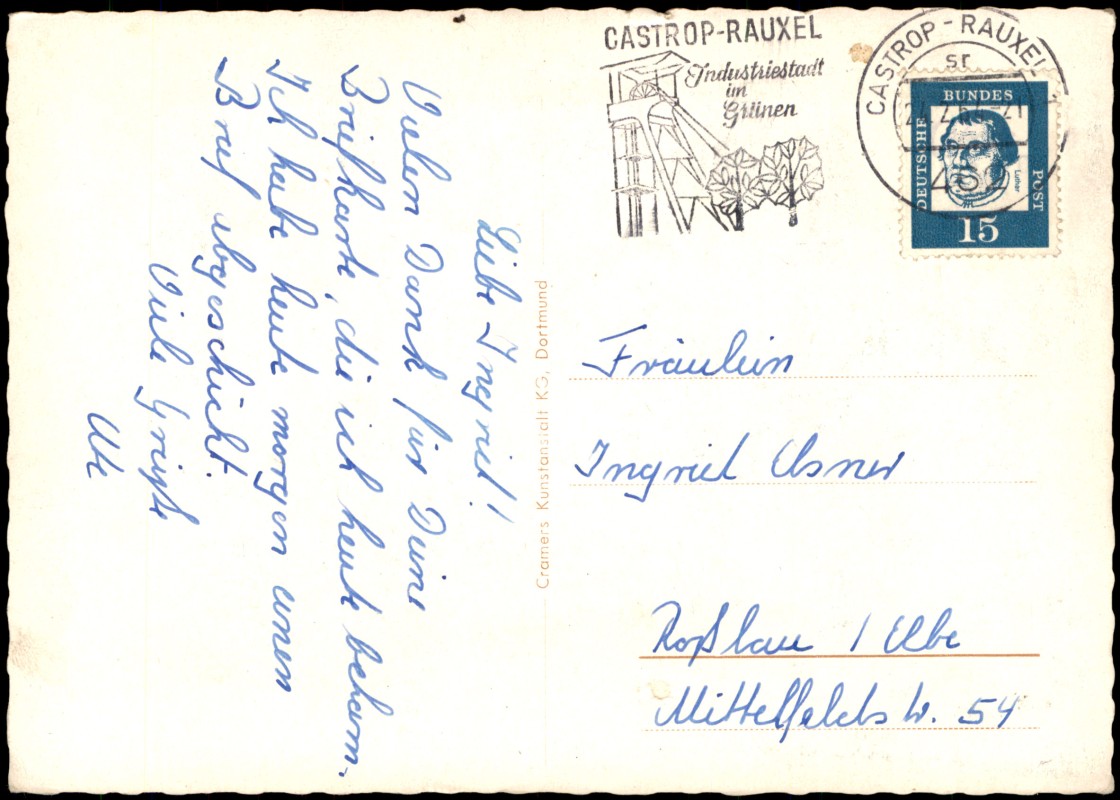 CASTROP-RAUXEL
Industriestadt
im
Grünen
CASTROP-RAUXEL
DEUTSCHE
BUNDES
POST
Luther
15
Liebe Ingrid!
Vielen Dank für Deine
Briefkarte, die ich heute bekam.
Ich habe heute morgen einen
Brief abgeschickt.
Viele Grüße
Ute
Cramers Kunstanstalt KG, Dortmund
Fräulein
Ingrid
Roßlau / Elbe
Mittelfeldstr. 54